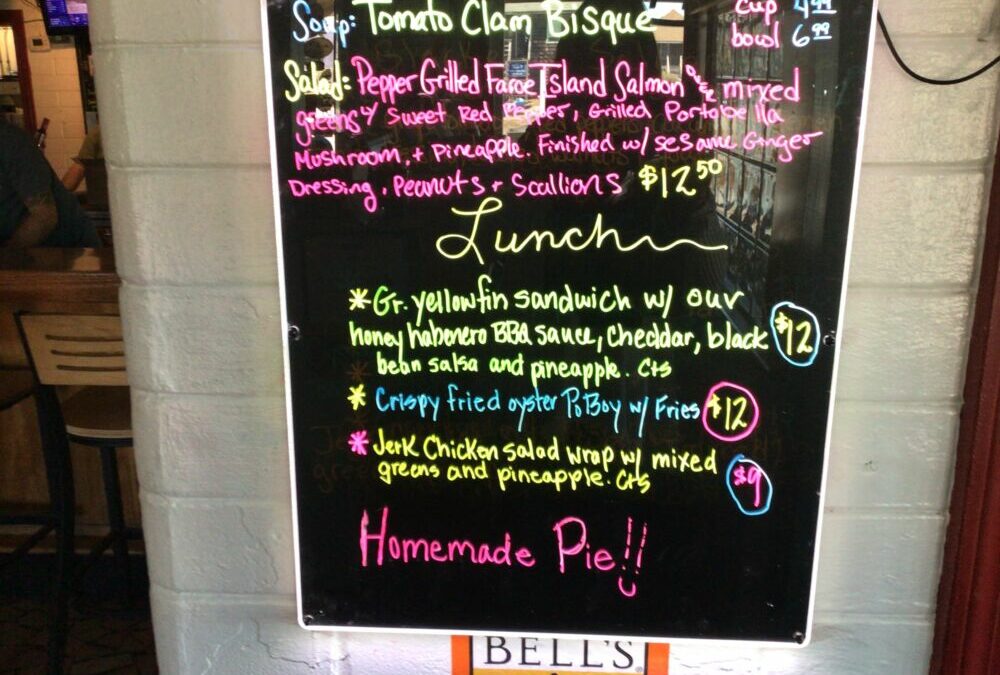 Soup: Tomato Clam Bisque
cup 4.99
bowl 6.99
Salad: Pepper Grilled Faroe Island Salmon over mixed
greens w/ Sweet Red Pepper, Grilled Portobella
Mushroom, + Pineapple. Finished w/ Sesame Ginger
Dressing, Peanuts + Scallions $12.50
Lunch
*Gr. yellowfin sandwich w/ our
honey habenero BBQ sauce, cheddar, black $12
bean salsa and pineapple. Cts
* Crispy fried oyster PoBoy w/ Fries $12
* Jerk Chicken salad wrap w/ mixed
greens and pineapple. Cts $9
Homemade Pie!!
BELL'S